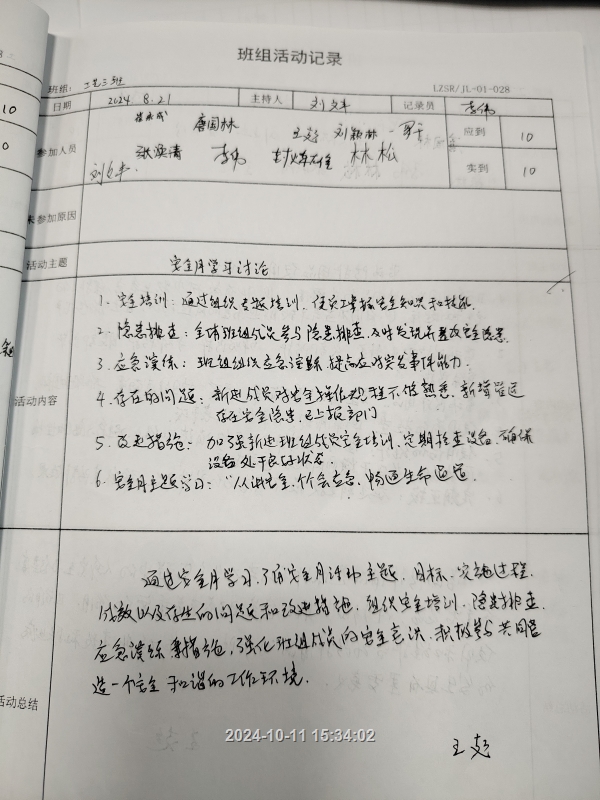 班组活动记录
班组： 工艺三班
LZSR/JL-01-028
日期 2024. 8.21 主持人 刘文丰 记录员 李伟
参加人员 唐国林 王超 刘颖林 应到 10
李伟 林松 实到 10
未参加原因
活动主题 安全月学习讨论
活动内容
1. 安全培训：通过组织专题培训，使员工掌握安全知识和技能.
2. 隐患排查：全体班组成员参与隐患排查，及时发现并整改安全隐患.
3. 应急演练：班组组织应急演练，提高应对突发事件能力.
4. 存在的问题：新进成员对安全操作规程不够熟悉，新增管道
存在安全隐患，已上报部门
5. 改进措施：加强新进班组成员安全培训，定期检查设备，确保
设备处于良好状态.
6. 安全月主题学习：“人人讲安全，个个会应急，畅通生命通道
活动总结
通过安全月学习，了解安全月活动主题、目标、实施过程、
成效以及存在的问题和改进措施，组织安全培训、隐患排查、
应急演练等措施，强化班组成员的安全意识，积极参与共同营
造一个安全和谐的工作环境.
王超
2024-10-11 15:34:02